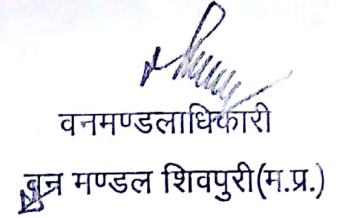 वनमण्डलाधिकारी
वन मण्डल शिवपुरी(म.प्र.)